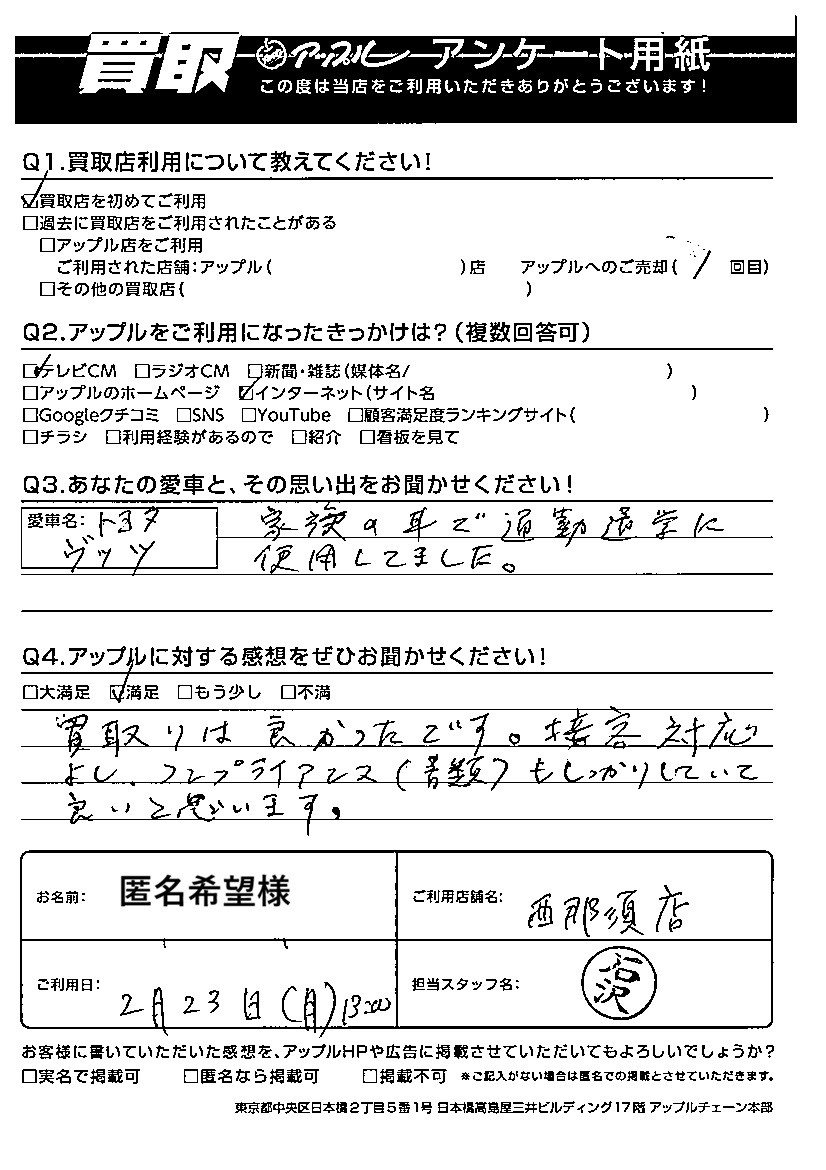 買取 アップル アンケート用紙
この度は当店をご利用いただきありがとうございます!
Q1.買取店利用について教えてください!
☑買取店を初めてご利用
□過去に買取店をご利用されたことがある
□アップル店をご利用
ご利用された店舗:アップル( )店 アップルへのご売却( 1 回目)
□その他の買取店( )
Q2.アップルをご利用になったきっかけは?(複数回答可)
☑テレビCM □ラジオCM □新聞・雑誌(媒体名/ )
□アップルのホームページ ☑インターネット(サイト名 )
□Googleクチコミ □SNS □YouTube □顧客満足度ランキングサイト( )
□チラシ □利用経験があるので □紹介 □看板を見て
Q3.あなたの愛車と、その思い出をお聞かせください!
愛車名:トヨタ 家族の車で通勤通学に
ヴッツ 使用してました。
Q4.アップルに対する感想をぜひお聞かせください!
□大満足 ☑満足 □もう少し □不満
買取りは良かったです。接客対応
よし、コンプライアンス(書類)もしっかりしていて
良いと思います。
お名前: 匿名希望様 ご利用店舗名: 西那須店
ご利用日: 2月23日(月)13:00 担当スタッフ名: 石沢
お客様に書いていただいた感想を、アップルHPや広告に掲載させていただいてもよろしいでしょうか?
□実名で掲載可 □匿名なら掲載可 □掲載不可 ※ご記入がない場合は匿名での掲載とさせていただきます。
東京都中央区日本橋2丁目5番1号 日本橋髙島屋三井ビルディング17階 アップルチェーン本部